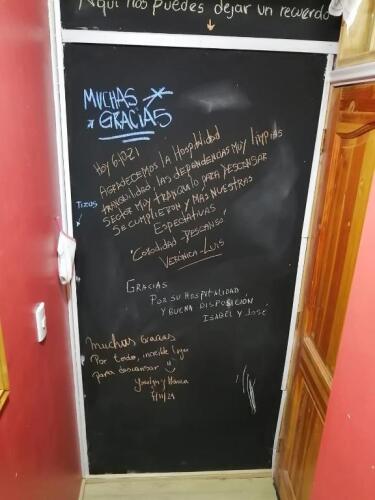 Aquí nos puedes dejar un recuerdo
MUCHAS
GRACIAS
Hoy
AGRADECEMOS LA HOSPITALIDAD
TRANQUILIDAD, LAS DEPENDENCIAS MUY LIMPIAS
SECTOR MUY TRANQUILO PARA DESCANSAR
SE CUMPLIERON Y MAS NUESTRAS
EXPECTATIVAS
"COMODIDAD - DESCANSO"
VERÓNICA - LUIS
TIZAS
GRACIAS
POR SU HOSPITALIDAD
Y BUENA DISPOSICIÓN
ISABEL Y JOSÉ
Muchas Gracias
Por todo, increíble lugar
para descansar